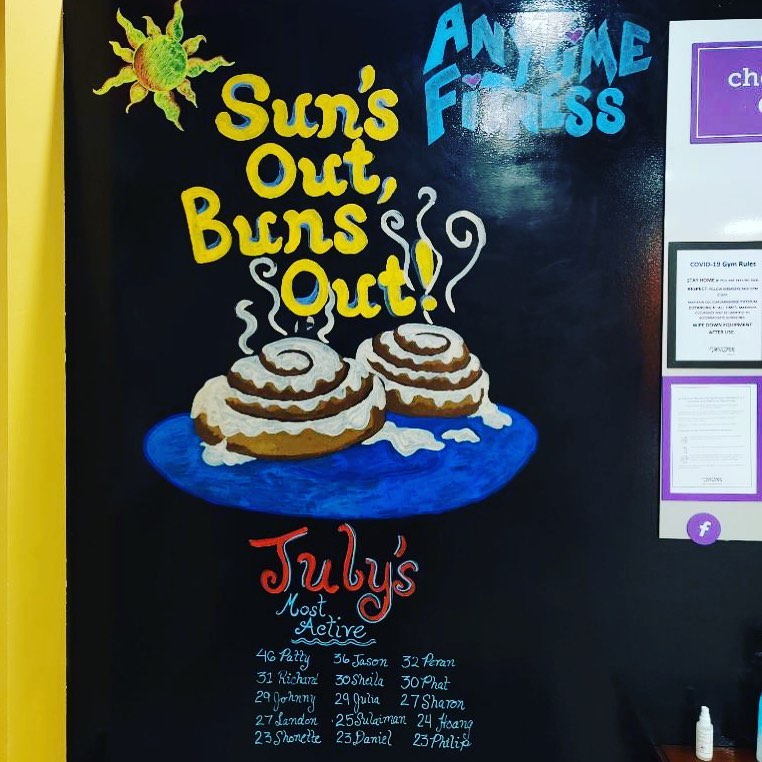 Sun's
Out,
Buns
Out!
ANYTIME
FITNESS
July's
Most
Active
46 Patty 36 Jason 32 Peran
31 Richard 30 Sheila 30 Phat
29 Johnny 29 Julia 27 Sharon
27 Landon 25 Sulaiman 24 Hoang
23 Shonette 23 Daniel 23 Philip
COVID-19 Gym Rules
WIPE DOWN EQUIPMENT
AFTER USE
f